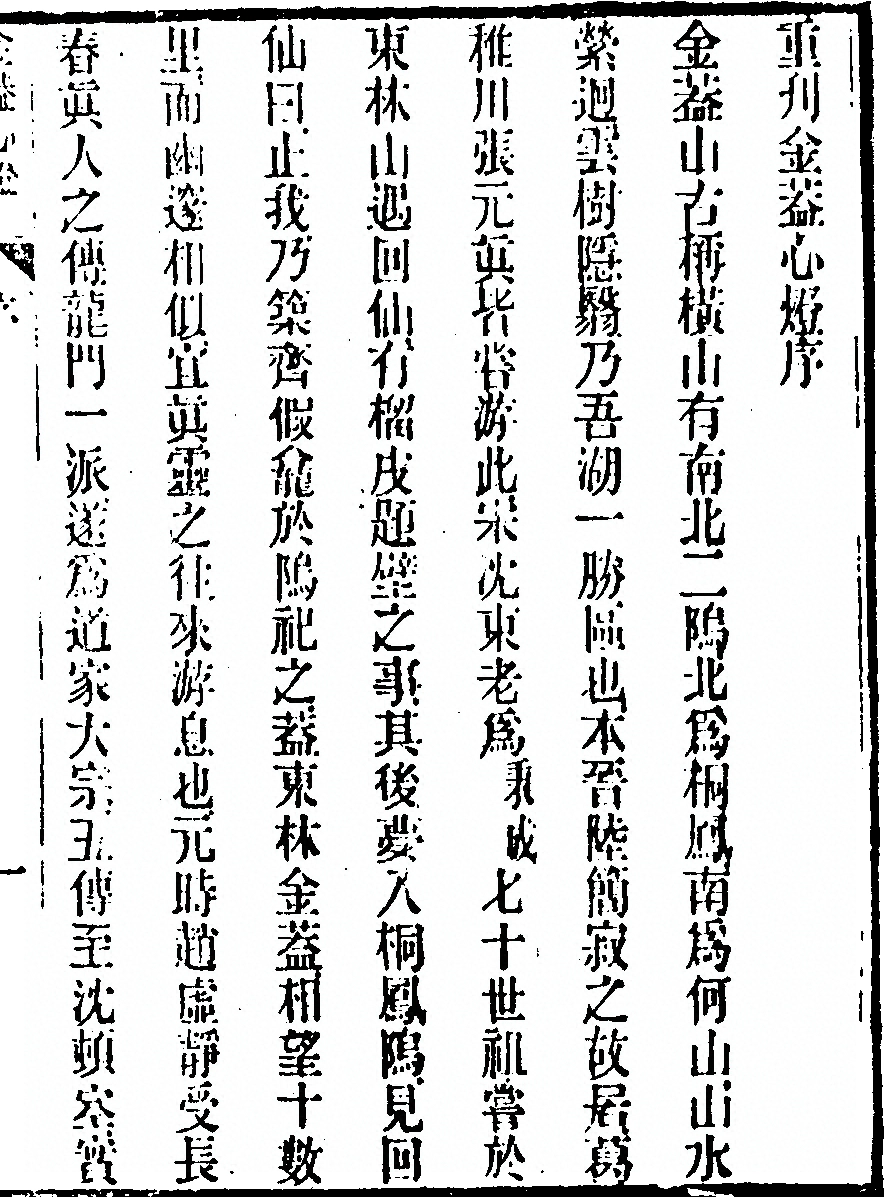 重刋金葢心燈序
金葢山古稱橫山有南北二隖北爲桐鳳南爲何山山水
縈迴雲樹隱翳乃吾湖一勝區也本晉陸簡寂之故居葛
稚川張元眞皆嘗游此宋沈東老爲秉成七十世祖嘗於
東林山遇回仙有榴皮題壁之事其後夢入桐鳳隖見回
仙曰止我乃築齋假龕於隖祀之葢東林金葢相望十數
里而幽邃相似宜眞靈之往來游息也元時趙虛靜受長
春眞人之傳龍門一派遂爲道家大宗五傳至沈頓空實
金葢心燈
序
一